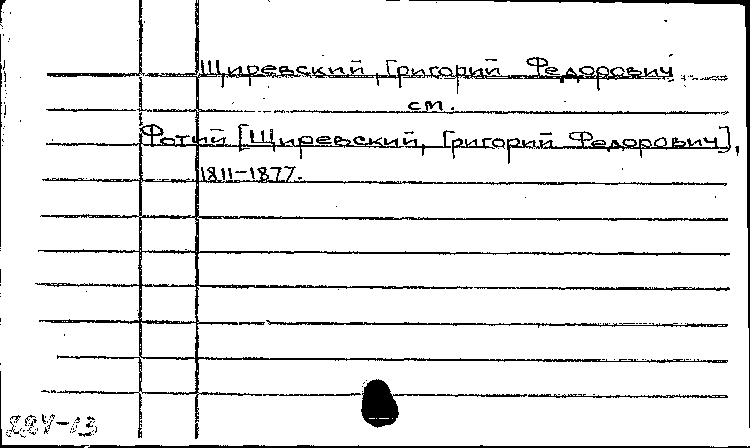 Щиревский, Григорий Федорович
см.
Фотий [Щиревский, Григорий Федорович],
1811-1877.